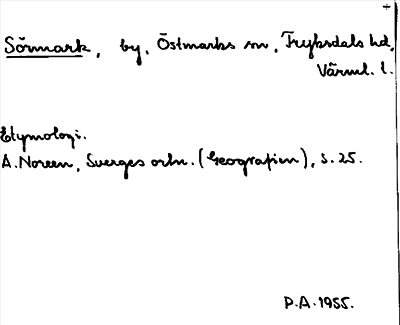 +
Sörmark, by, Östmarks sn, Fryksdals hd,
Värml. l.
Etymologi.
A. Noreen, Sverges ortn. (Geografien), s. 25.
P.A. 1955.